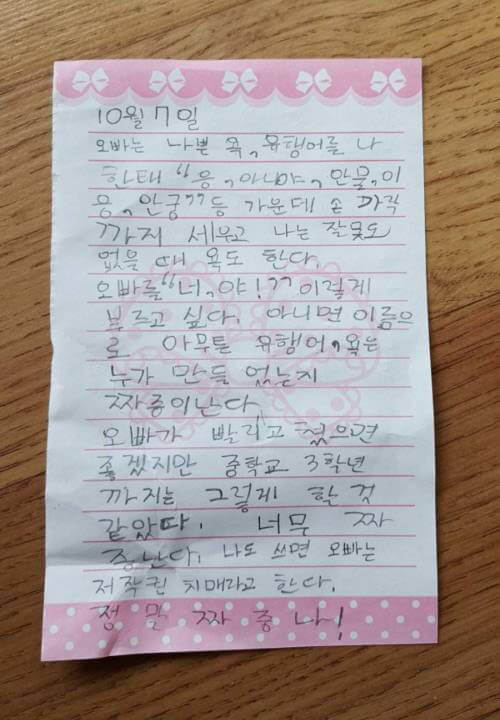 10월 7일
오빠는 나쁜 욕,유행어를 나
한태 "응,아니야,안물,이
응,안궁"등 가운데 손 까락
까지 세우고 나는 잘못도
없을 때 욕도 한다.
오빠를"너,야!"이렇게
부르고 싶다. 아니면 이름으
로 아무튼 유행어,욕은
누가 만들 었는지
짜증이난다
오빠가 빨리고 쳤으면
좋겠지만 중학교 3학년
까지는 그렇게 할 것
같았다. 너무 짜
증난다. 나도 쓰면 오빠는
저작퀸 치매라고 한다.
정 말 짜 증 나!